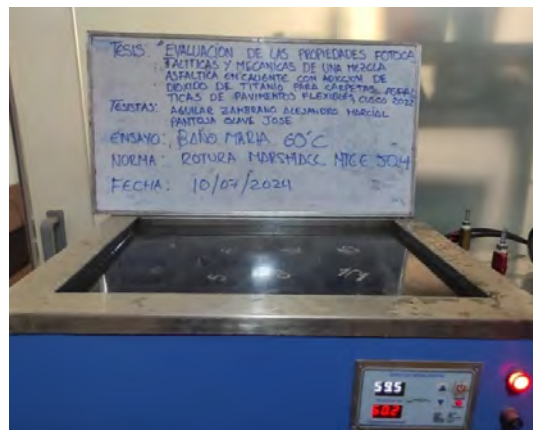 TESIS: "EVALUACIÓN DE LAS PROPIEDADES FOTOCA
TALITICAS Y MECANICAS DE UNA MEZCLA
ASFALTICA EN CALIENTE CON ADICION DE
DIOXIDO DE TITANIO PARA CARPETAS ASFAL
TICAS DE PAVIMENTOS FLEXIBLES, CUSCO 2022
TESISTAS: AGUILAR ZAMBRANO ALEJANDRO MARCIAL
PANTOJA OLAVE JOSE
ENSAYO: BAÑO MARIA 60°C
NORMA: ROTURA MARSHALL MTC E 504
FECHA: 10/07/2024
59.5